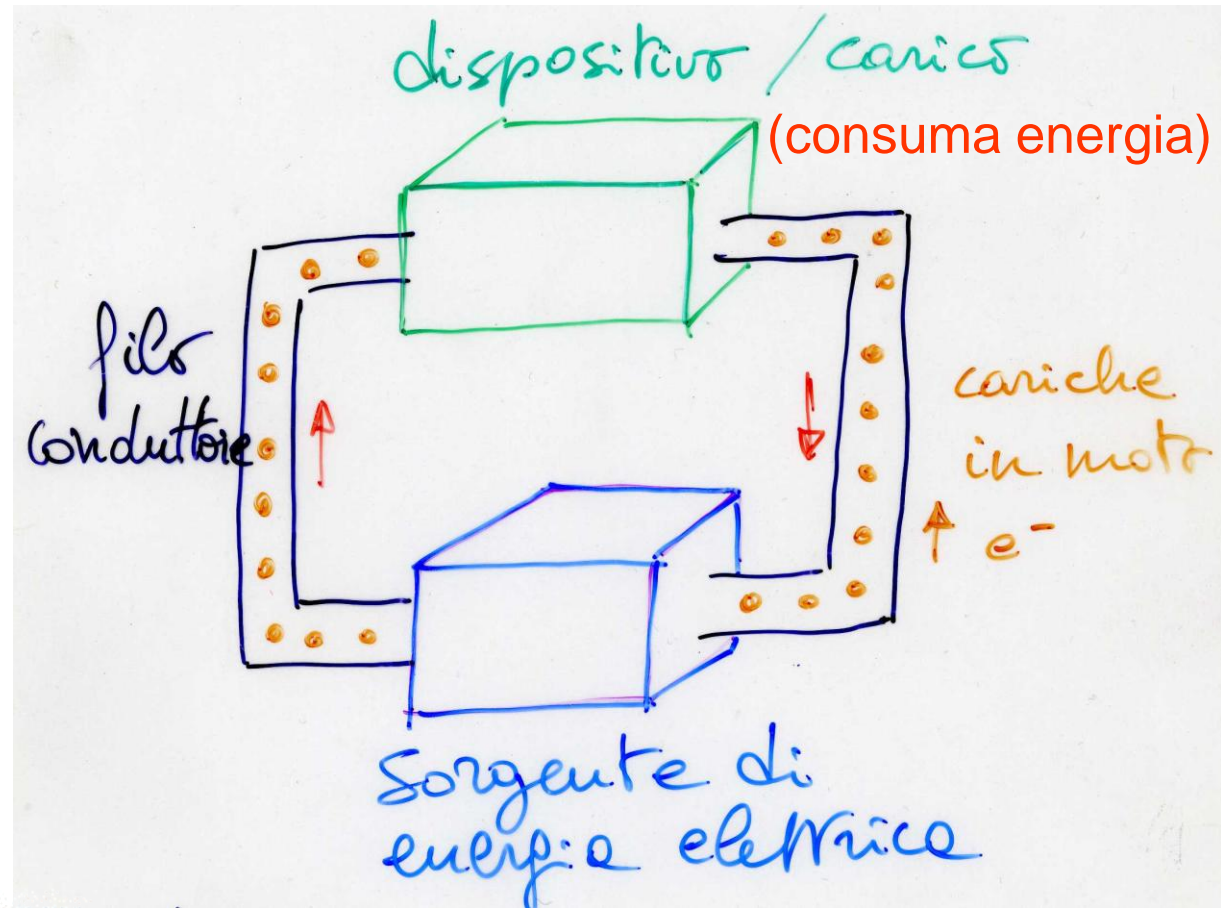 dispositivo / carico
(consuma energia)
filo
conduttore
cariche
in moto
e-
sorgente di
energia elettrica